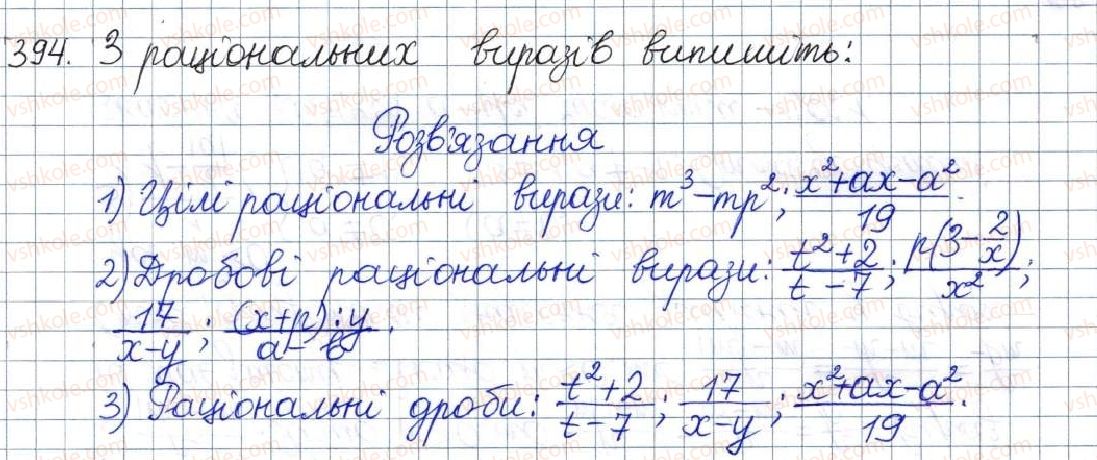 394. З раціональних виразів випишіть:
Розв'язання
1) Цілі раціональні вирази: m³-mp²; (x²+ax-a²)/19.
2) Дробові раціональні вирази: (t²+2)/(t-7); p(3-2/x)/x²;
17/(x-y); ((x+p):y)/(a-b).
3) Раціональні дроби: (t²+2)/(t-7); 17/(x-y); (x²+ax-a²)/19.